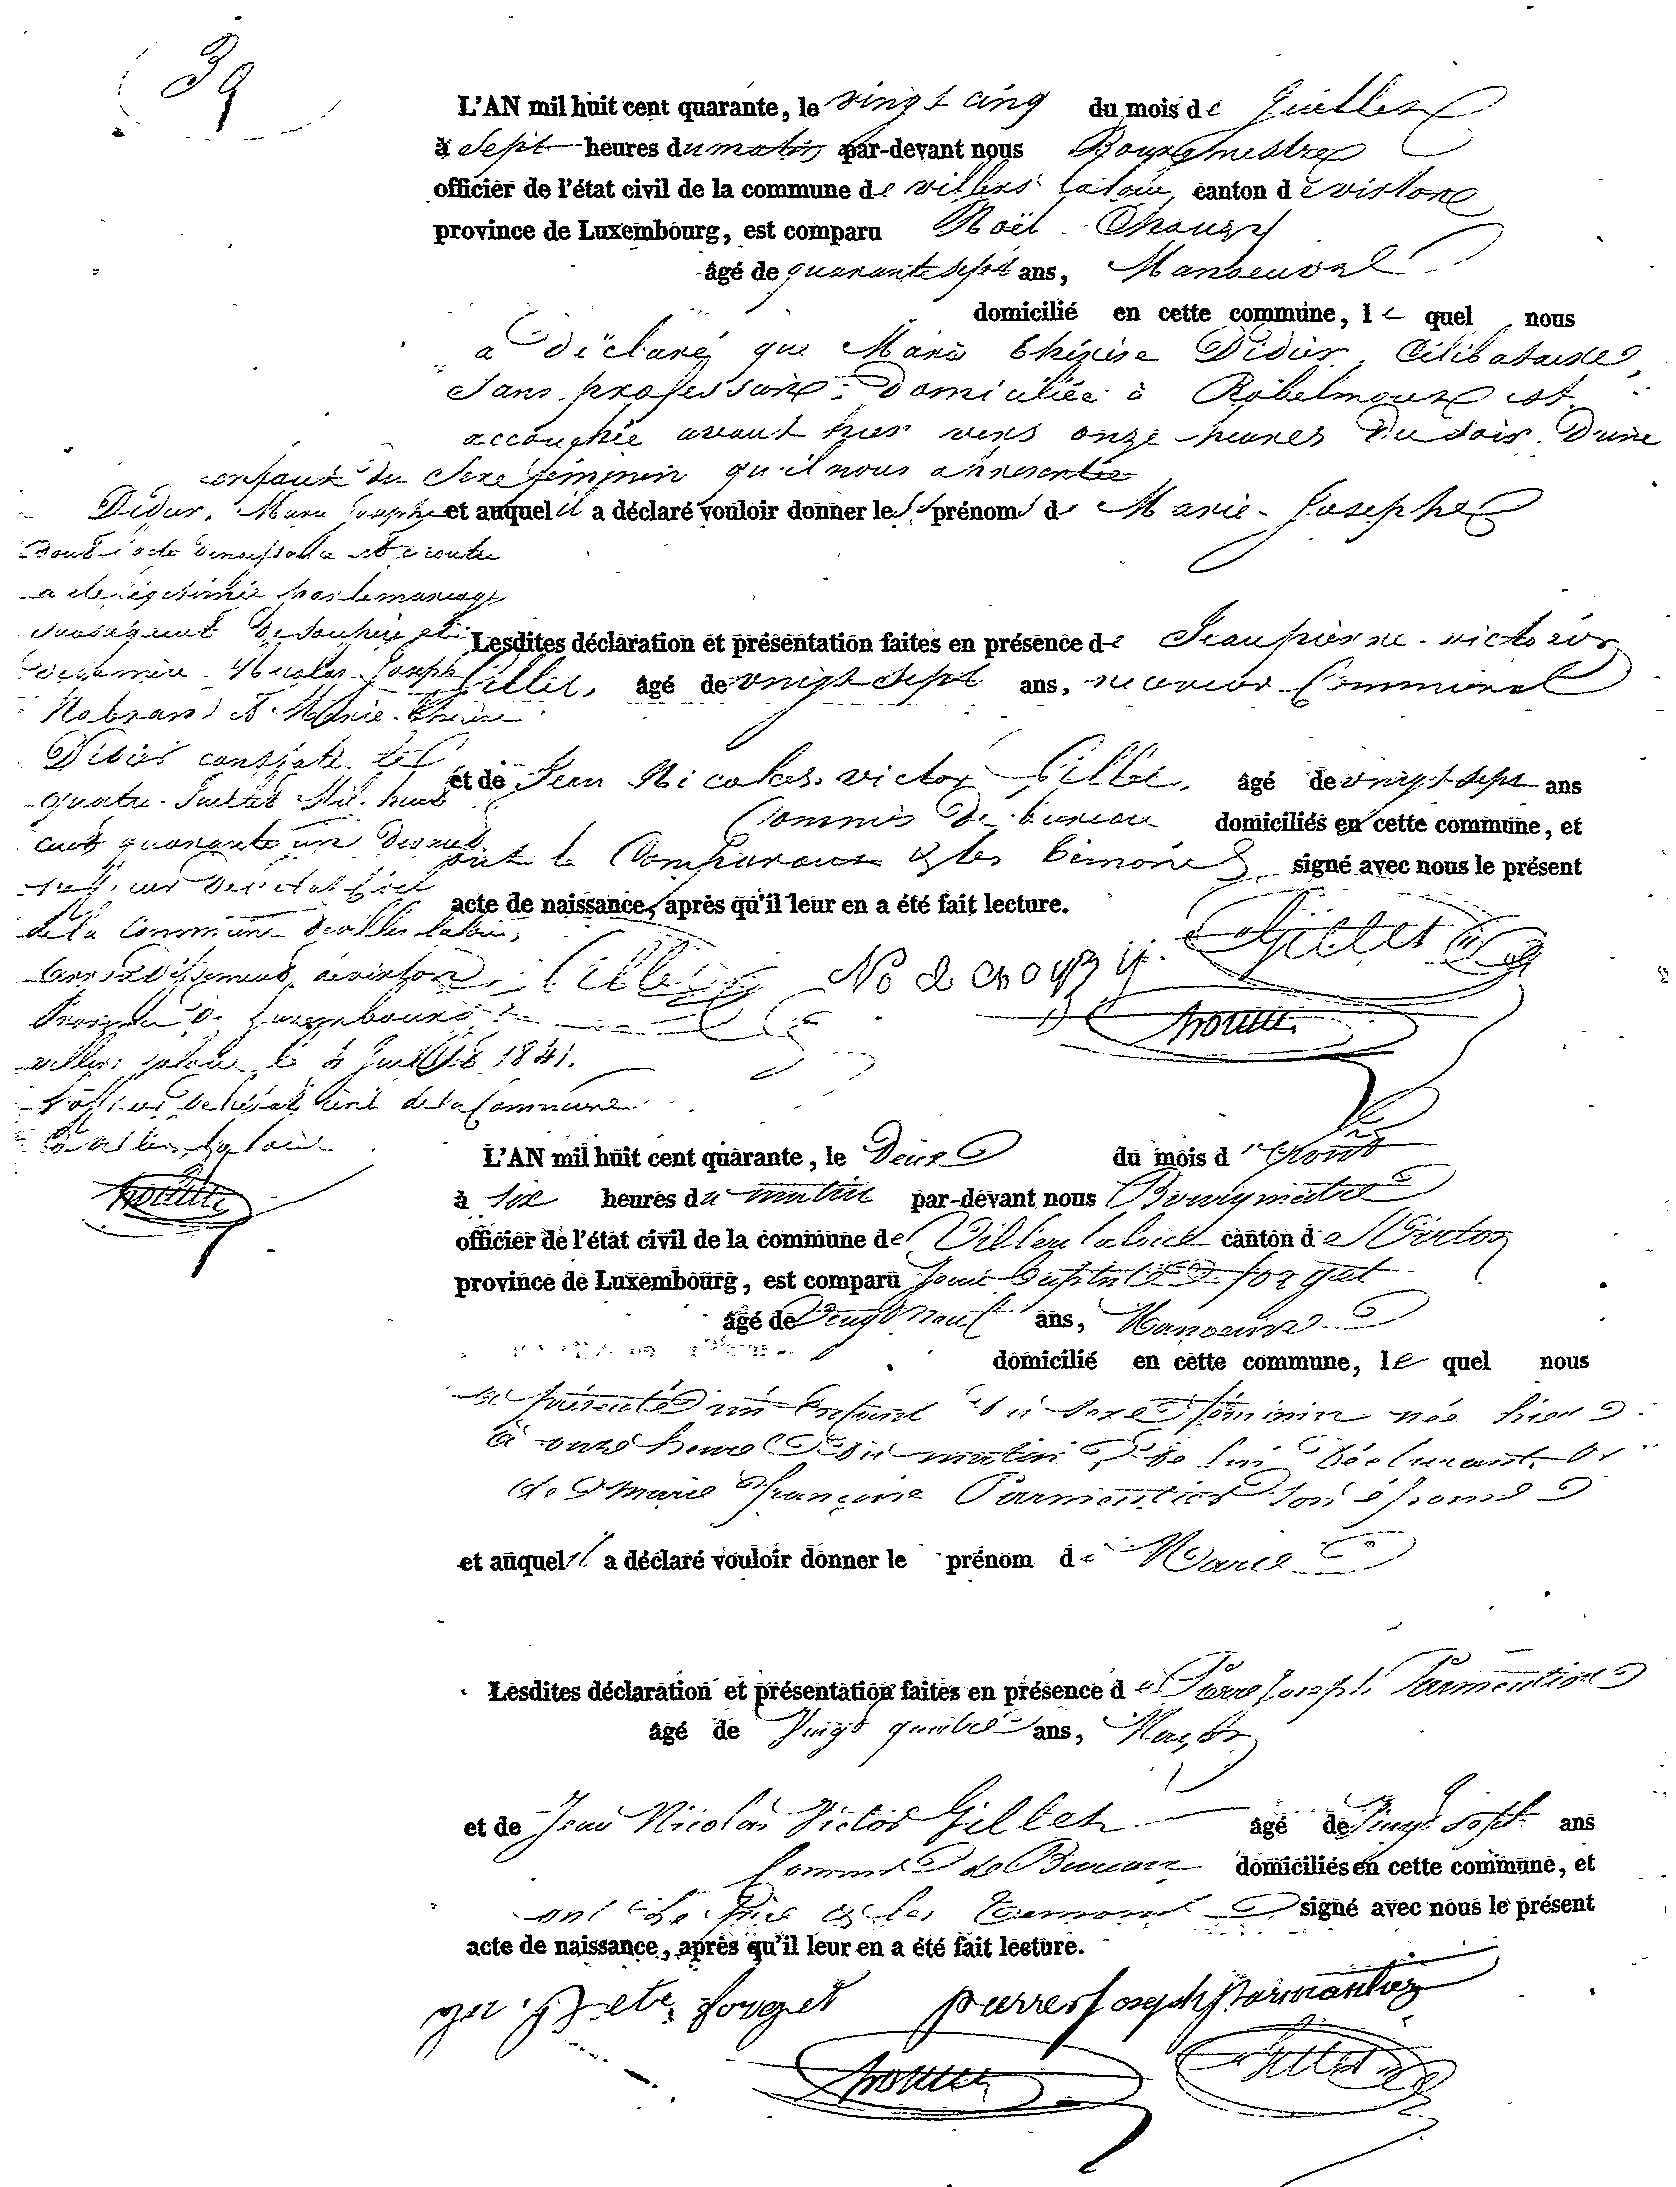 39
L'AN mil huit cent quarante, le vingt cinq du mois de Juillet
à sept heures du matin par-devant nous Bourgmestre
officier de l'état civil de la commune de villers la loue, canton de virton
province de Luxembourg, est comparu Noël
âgé de quarante sept ans, Manoeuvre
domicilié en cette commune, lequel nous
a déclaré que Marie thérèse Didier, Célibataire,
sans profession, Domiciliée à Robelmont est
accouchée avant hier vers onze heures du soir D'une
enfant du sexe féminin qu'il nous a présentée
et auquel il a déclaré vouloir donner les prénoms de Marie-Josephe
Didier, Marie Josephe
dont l'acte de naissance est ci contre
a été légitimée par le mariage
subséquent de son père et
de sa mère Nicolas Joseph
et Marie Thérèse
Didier contracté le
quatre Juillet Mil huit
cent quarante un devant
l'officier de l'état Civil
de la Commune de villers la loue,
arrondissement de virton
Province de Luxembourg
villers la loue le 4 Juillet 1841.
l'officier de l'état Civil de la Commune
de villers la loue
Lesdites déclaration et présentation faites en présence de Jean pierre victor
Gillet, âgé de vingt sept ans, receveur Communal
et de Jean Nicolas victor Gillet, âgé de vingt sept ans
Commis de bureau domiciliés en cette commune, et
ont le Comparant & les témoins signé avec nous le présent
acte de naissance, après qu'il leur en a été fait lecture.
Gillet
Gillet
L'AN mil huit cent quarante, le Deux du mois d'Août
à six heures du matin par-devant nous Bourgmestre
officier de l'état civil de la commune de Villers la loue canton de Virton
province de Luxembourg, est comparu Jean Baptiste forget
âgé de Vingt neuf ans, Manoeuvre
domicilié en cette commune, lequel nous
a présenté un Enfant du sexe féminin née hier
à onze heures du matin, de lui déclarant et
de Marie françoise Parmentier son épouse
et auquel il a déclaré vouloir donner le prénom de Marie
Lesdites déclaration et présentation faites en présence de Pierre Joseph Parmentier
âgé de Vingt quatre ans, Maçon
et de Jean Nicolas Victor Gillet âgé de Vingt Sept ans
Commis de Bureau domiciliés en cette commune, et
ont le Père & les Témoins signé avec nous le présent
acte de naissance, après qu'il leur en a été fait lecture.
forget pierre joseph parmantier
Gillet